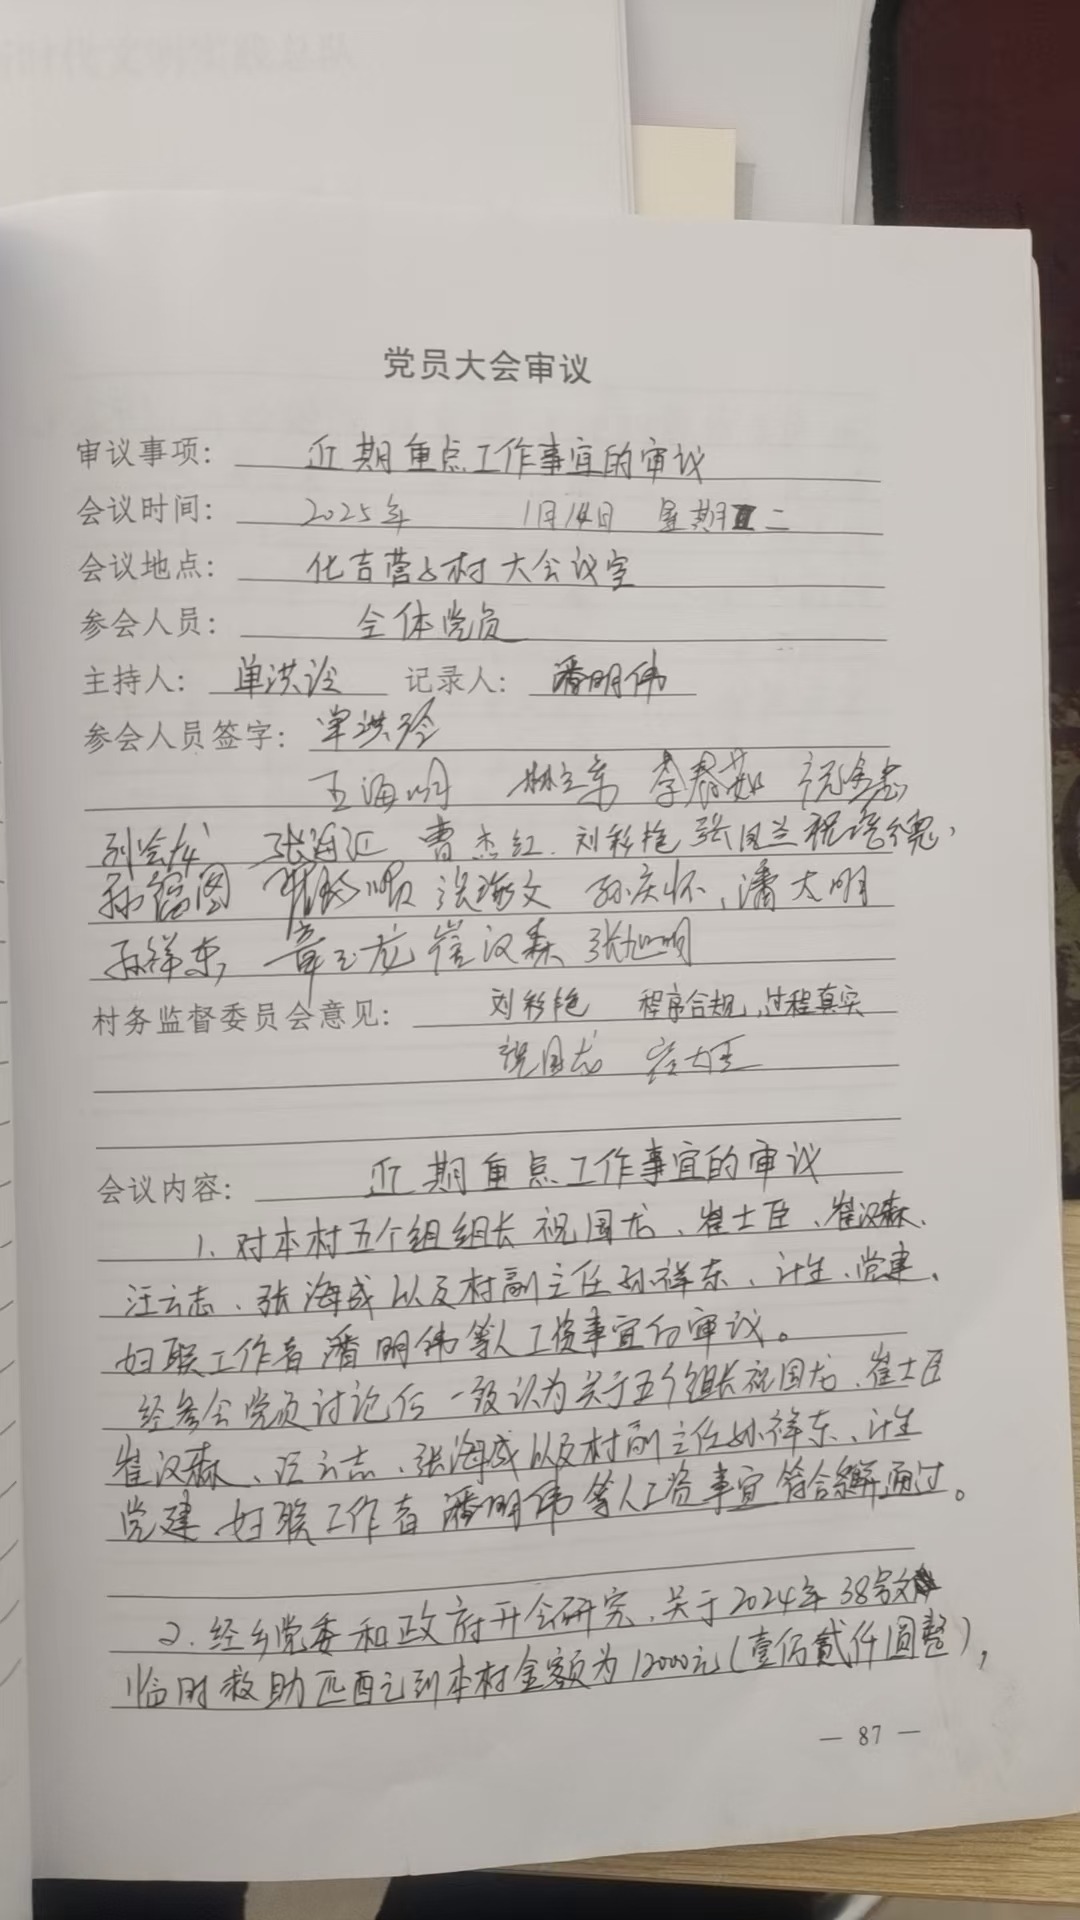 党员大会审议
审议事项: 近期重点工作事宜的审议
会议时间: 2025年 1月14日 星期二
会议地点: 化吉营子村大会议室
参会人员: 全体党员
主持人: 单洪玲 记录人: 潘明伟
参会人员签字: 单洪玲
王海明 林立东 李春茹
张海江 曹杰红. 刘彩艳 张凤兰
孙福图 张海文 孙庆怀、潘大明
孙祥东, 章玉龙 崔汉森 张旭明
村务监督委员会意见: 刘彩艳 程序合规,过程真实
祝国龙
会议内容: 近期重点工作事宜的审议
1、对本村五个组组长祝国龙、崔士臣、崔汉森、
汪云志、张海成以及村副主任孙祥东、计生、党建、
妇联工作者潘明伟等人工资事宜的审议。
经参会党员讨论后一致认为关于五个组长祝国龙、崔士臣
崔汉森、汪云志、张海成以及村副主任孙祥东、计生
党建、妇联工作者潘明伟等人工资事宜符合 通过。
2、经乡党委和政府开会研究、关于2024年38号文
临时救助匹配到本村金额为12000元(壹佰贰仟圆整),
— 87 —